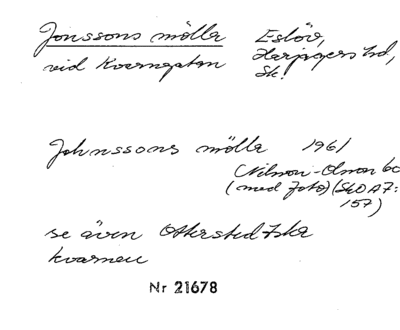 Jonssons mölla Eslöv,
vid Kvarngatan Harjagers hd,
Sk.
Johnssons mölla 1961
Nilmon-Olmon 60
(med foto) (SkOA7:
157)
se även Otterstedtska
kvarnen
Nr 21678